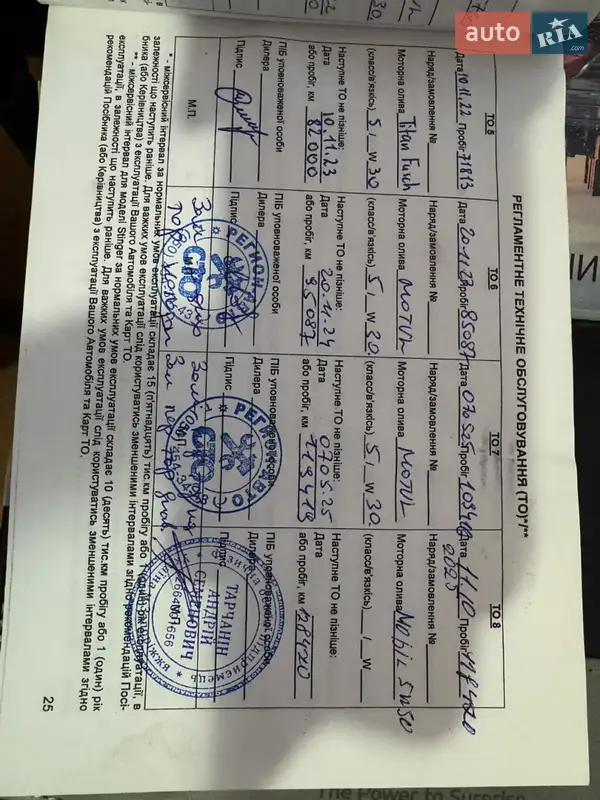 auto RIA.com
РЕГЛАМЕНТНЕ ТЕХНІЧНЕ ОБСЛУГОВУВАННЯ (ТО)*/**
ТО 5
Дата 10.11.22 Пробіг 71813
Наряд/замовлення №
Моторна олива Titan Fuch
(класс/в'язкість) 5 / W 30
Наступне ТО не пізніше:
Дата 10.11.23
або пробіг, км 82000
ПІБ уповноваженої особи
Дилера
Підпис
М.П.
ТО 6
Дата 20.11.23 Пробіг 85087
Наряд/замовлення №
Моторна олива MOTUL
(класс/в'язкість) 5 / W 30
Наступне ТО не пізніше:
Дата 20.11.24
або пробіг, км 95087
ПІБ уповноваженої особи
Дилера
Підпис
РЕГИОН АВТО
СТО
ТО 7
Дата 07.05.25 Пробіг
Наряд/замовлення №
Моторна олива MOTUL
(класс/в'язкість) 5 / W 30
Наступне ТО не пізніше:
Дата 07.05.25
або пробіг, км 119419
ПІБ уповноваженої особи
Дилера
Підпис
РЕГИОН АВТО
СТО
ТО 8
Дата 11.10 2025 Пробіг 118420
Наряд/замовлення №
Моторна олива Mobil 5W50
(класс/в'язкість) / W
Наступне ТО не пізніше:
Дата
або пробіг, км 128420
ПІБ уповноваженої особи
Дилера
Підпис
М.П.
ТАРЧАНІН
АНДРІЙ
СЕМЕНОВИЧ
* - міжсервісний інтервал за нормальних умов експлуатації складає 15 (п'ятнадцять) тис.км пробігу або 1 (один) рік експлуатації, в
залежності що наступить раніше. Для важких умов експлуатації слід користуватись зменшеними інтервалами згідно рекомендацій Посі-
бника (або Керівництва) з експлуатації Вашого Автомобіля та Карт ТО.
** - міжсервісний інтервал для моделі Stinger за нормальних умов експлуатації складає 10 (десять) тис.км пробігу або 1 (один) рік
експлуатації, в залежності що наступить раніше. Для важких умов експлуатації слід користуватись зменшеними інтервалами згідно
рекомендацій Посібника (або Керівництва) з експлуатації Вашого Автомобіля та Карт ТО.
25
The Power to Surprise